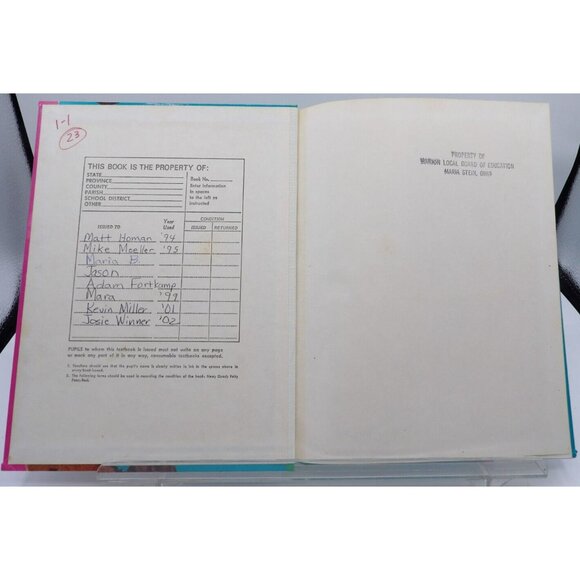 1-1
23
THIS BOOK IS THE PROPERTY OF:
STATE
PROVINCE
COUNTY
PARISH
SCHOOL DISTRICT
OTHER
Book No.
Enter information
in spaces
to the left as
instructed
ISSUED TO
Year Used
CONDITION
ISSUED RETURNED
Matt Homan '94
Mike Moeller '95
Maria B.
Jason
Adam Fortkamp
Mara '99
Kevin Miller '01
Josie Winner '02
PUPILS to whom this textbook is issued must not write on any page
or mark any part of it in any way, consumable textbooks excepted.
1. Teachers should see that the pupil's name is clearly written in ink in the spaces above in
every book issued.
2. The following terms should be used in recording the condition of the book: New; Good; Fair;
Poor; Bad.
PROPERTY OF
MARION LOCAL BOARD OF EDUCATION
MARIA STEIN, OHIO